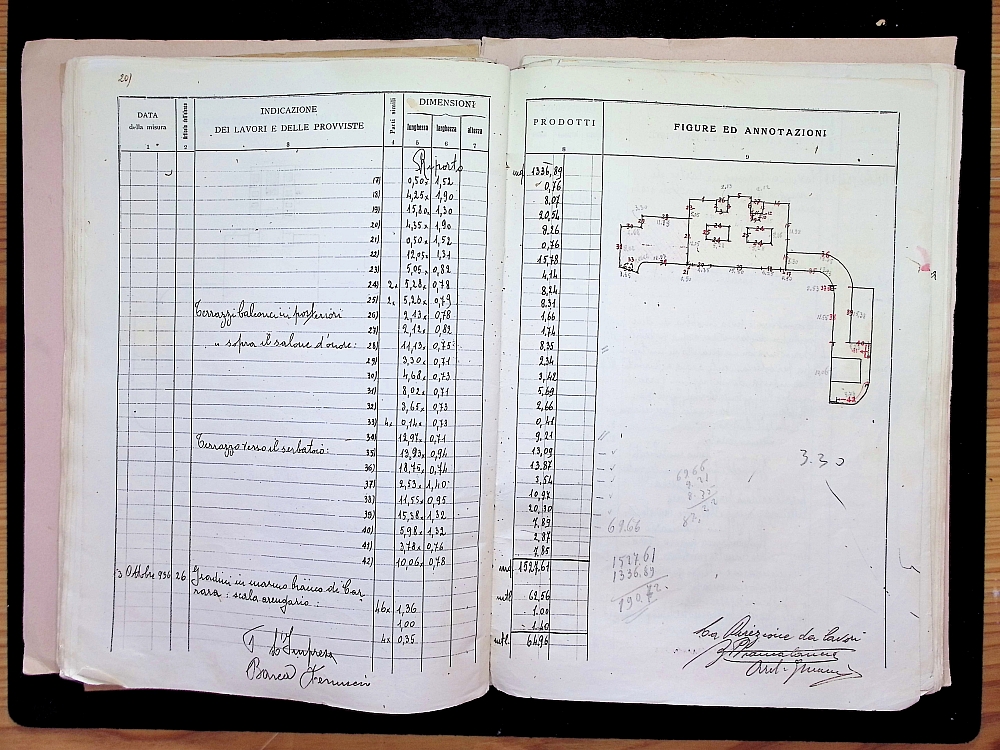 20)
DATA
della misura
INDICAZIONE
DEI LAVORI E DELLE PROVVISTE
Parti simili
DIMENSIONI
lunghezza
larghezza
altezza
PRODOTTI
FIGURE ED ANNOTAZIONI
1 2 3 4 5 6 7 8 9
Riporto mq 1336,89
17) 0,50 x 1,52 0,76
18) 4,25 x 1,90 8,07
19) 15,80 x 1,30 20,54
20) 4,35 x 1,90 8,26
21) 0,50 x 1,52 0,76
22) 12,05 x 1,31 15,78
23) 5,05 x 0,82 4,14
24) 2x 5,28 x 0,78 8,24
25) 2x 5,26 x 0,79 8,31
Terrazzi balconcini posteriori 26) 2,13 x 0,78 1,66
27) 2,12 x 0,82 1,74
" sopra il salone d'onore: 28) 11,13 x 0,75 8,35
29) 3,30 x 0,71 2,34
30) 4,68 x 0,73 3,42
31) 8,02 x 0,71 5,69
32) 3,65 x 0,73 2,66
33) 4x 0,14 x 0,73 0,41
34) 12,97 x 0,71 9,21
Terrazzo verso il serbatoio: 35) 13,93 x 0,94 13,09
36) 18,75 x 0,74 13,87
37) 2,53 x 1,40 3,54
38) 11,55 x 0,95 10,97
39) 15,38 x 1,32 20,30
40) 5,98 x 1,32 7,89
41) 3,78 x 0,76 2,87
42) 10,06 x 0,78 7,85
mq 1527,61
3 Ottobre 936 26 Gradini in marmo bianco di Car-
rara: scala arengario:
46x 1,36 mtl 62,56
1,00 1.00
4x 0,35 1.40
mtl 64,96
3.30
69.66
9.21
8.35
69.66
1527.61
1336.89
190.72
L'Impresa
La Direzione dei Lavori